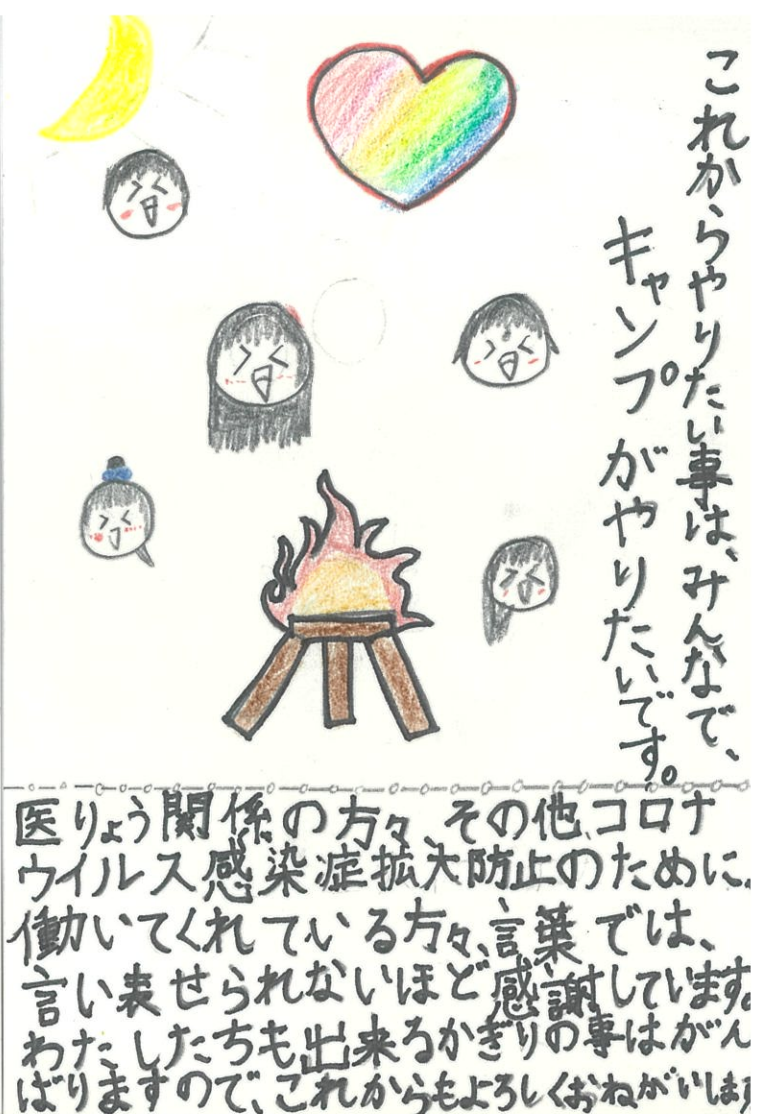 これからやりたい事は、みんなで、
キャンプがやりたいです。
医りょう関係の方々、その他、コロナ
ウイルス感染症拡大防止のために、
働いてくれている方々、言葉では、
言い表せられないほど感謝しています。
わたしたちも出来るかぎりの事はがん
ばりますので、これからもよろしくおねがいします